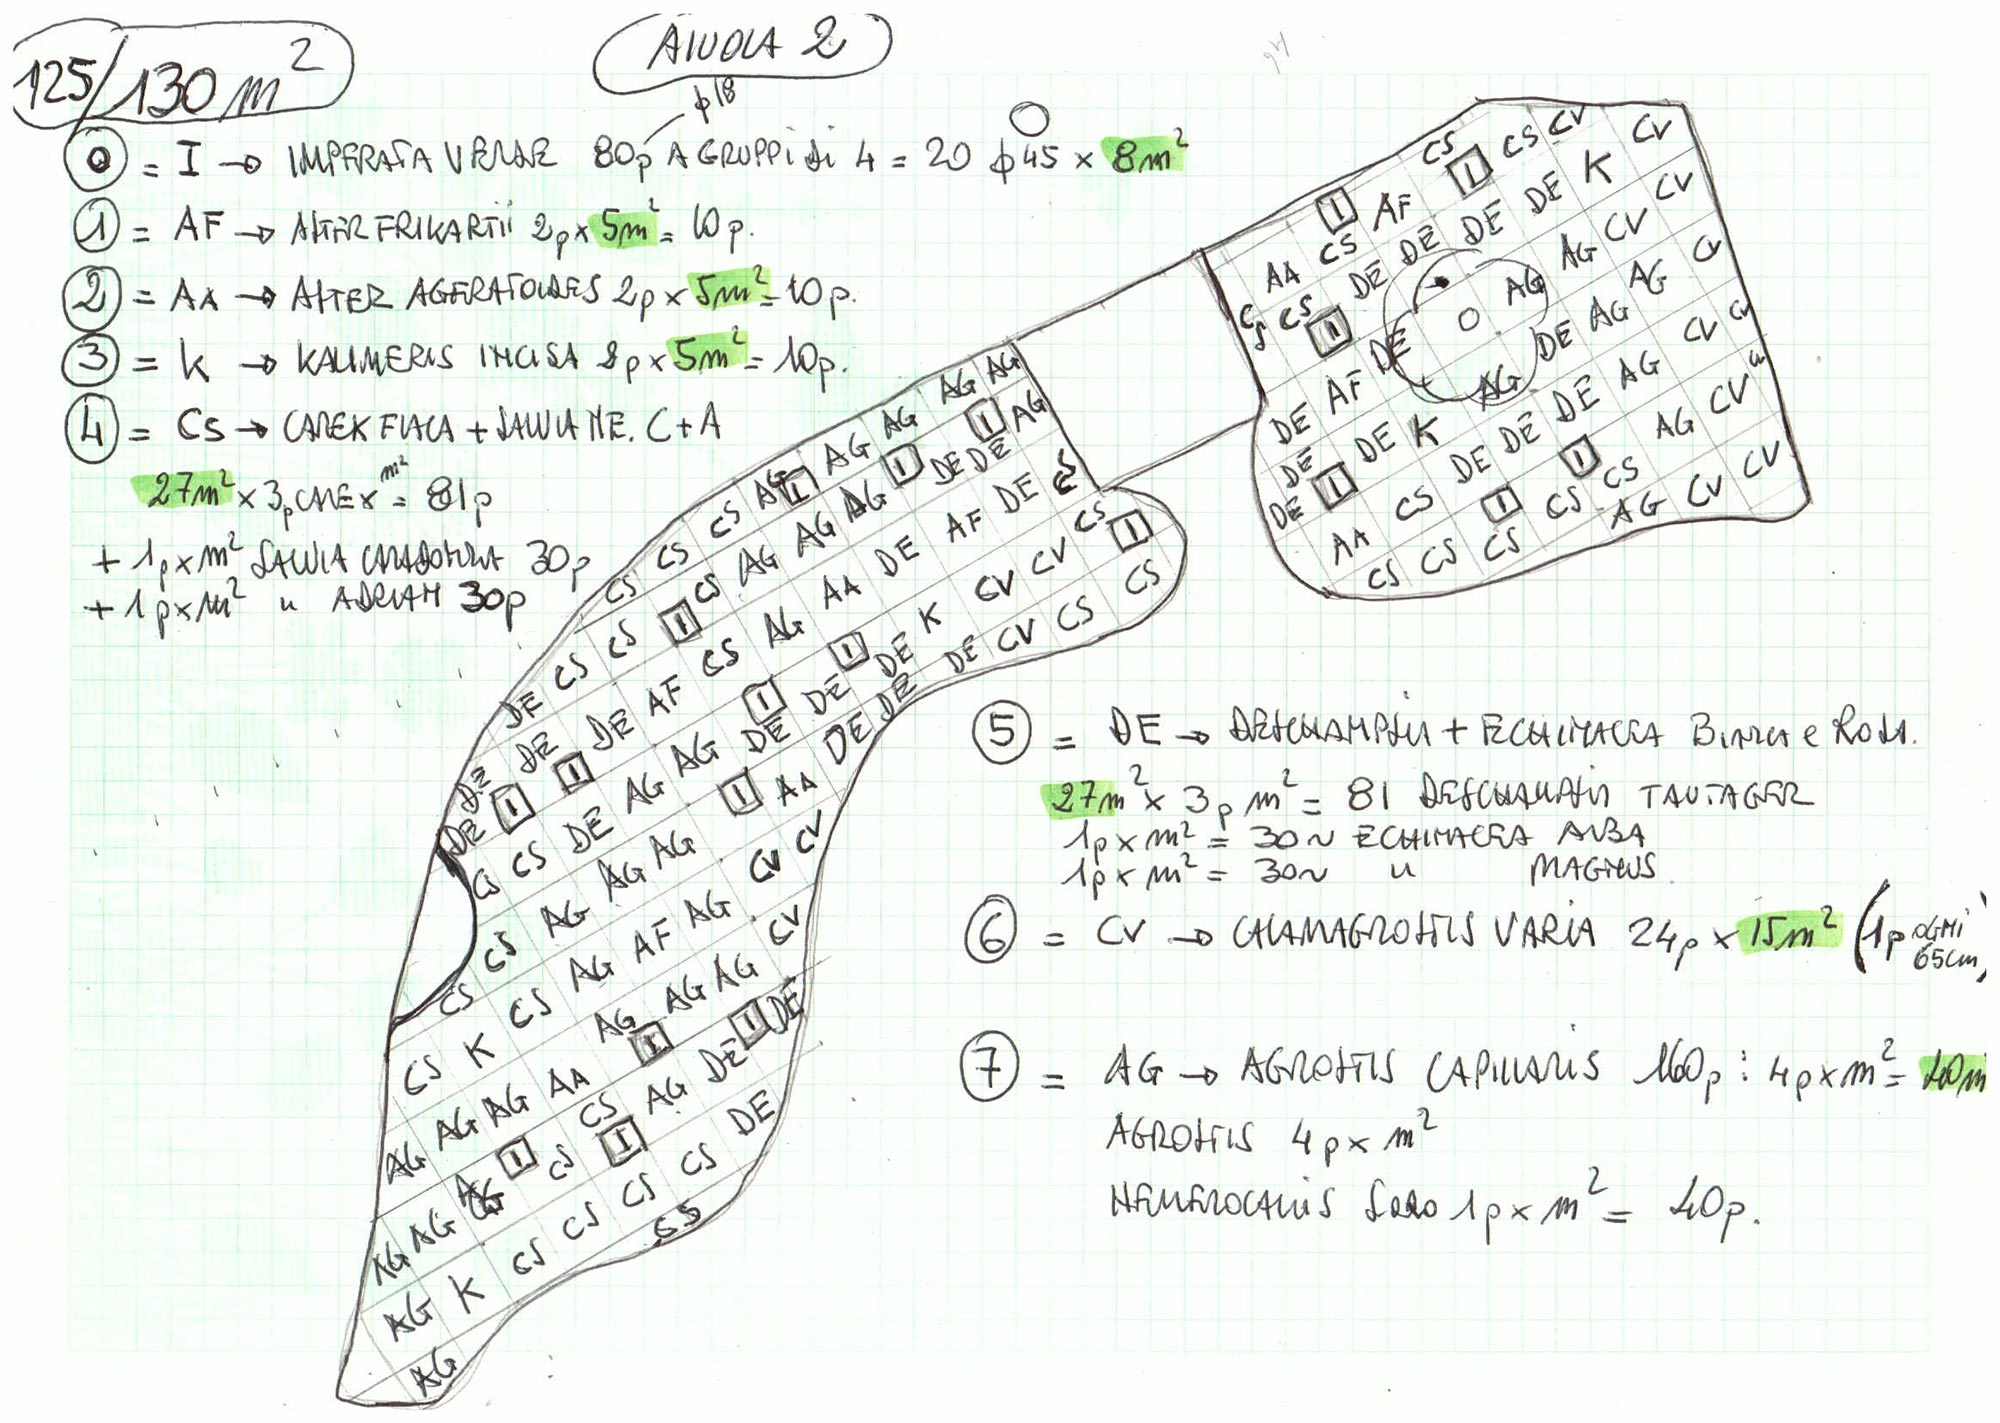 125/130 m²
AIUOLA 2
φ18
0 = I → IMPERATA VERDE 80p A GRUPPI di 4 = 20 φ 45 × 8m²
1 = AF → ASTER FRIKARTII 2p × 5m² = 10p.
2 = AA → ASTER AGERATOIDES 2p × 5m² = 10p.
3 = K → KALIMERIS INCISA 2p × 5m² = 10p.
4 = CS → CAREX FLACA + SALVIA NE. C+A
27m² × 3p CAREX m² = 81p
+ 1p × m² SALVIA CARADONNA 30p
+ 1p × m² " ADRIAN 30p
CS I CS CV CV
I AF DE DE K CV
AA CS DE DE AG CV
CS CS I DE AG AG CV
DE AF DE O DE AG CV CV
DE DE K AG DE AG CV CV
DE I CS DE DE DE AG CV
AA CS I I CS AG CV CV
CS CS CS CS AG CV
AG AG AG AG AG
CS CS CS AG I AG I DE DE I AG
DE CS CS I CS AG AG AG DE AF DE CS
DE DE DE AF CS AG AA DE K CV CV CS I
DE I I DE AG AG DE I DE I DE DE CV CS CS
CS CS DE AG AG I AA DE DE
CS AG AG AG CV CV
CS K CS AG AF AG CV
AG AG AG AA AG I AG AG
AG AG AG I CS CS AG DE I DE
AG K CS CS I CS CS DE
AG CS
5 = DE → DESCHAMPSIA + ECHINACEA BIANCA e ROSA.
27m² × 3p m² = 81 DESCHAMPSIA TAUTAGER
1p × m² = 30~ ECHINACEA ALBA
1p × m² = 30~ " MAGNUS.
6 = CV → CALAMAGROSTIS VARIA 24p × 15m² (1p OGNI 65cm)
7 = AG → AGROSTIS CAPILLARIS 160p : 4p × m² = 40m
AGROSTIS 4p × m²
HEMEROCALLIS 1p × m² = 40p.